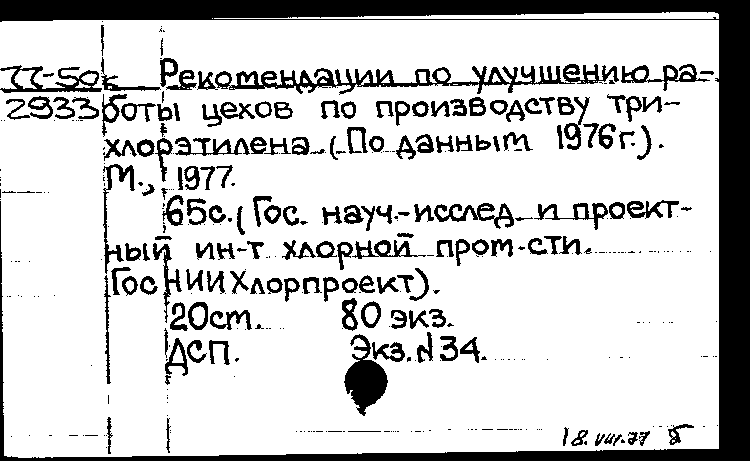 77-50к Рекомендации по улучшению ра-
2933 боты цехов по производству три-
хлорэтилена. (По данным 1976г.).
М., 1977.
65с. (Гос. науч.-исслед. и проект-
ный ин-т хлорной пром-сти.
ГосНИИХлорпроект).
20см. 80 экз.
ДСП. Экз. N 34.
18.VIII.77